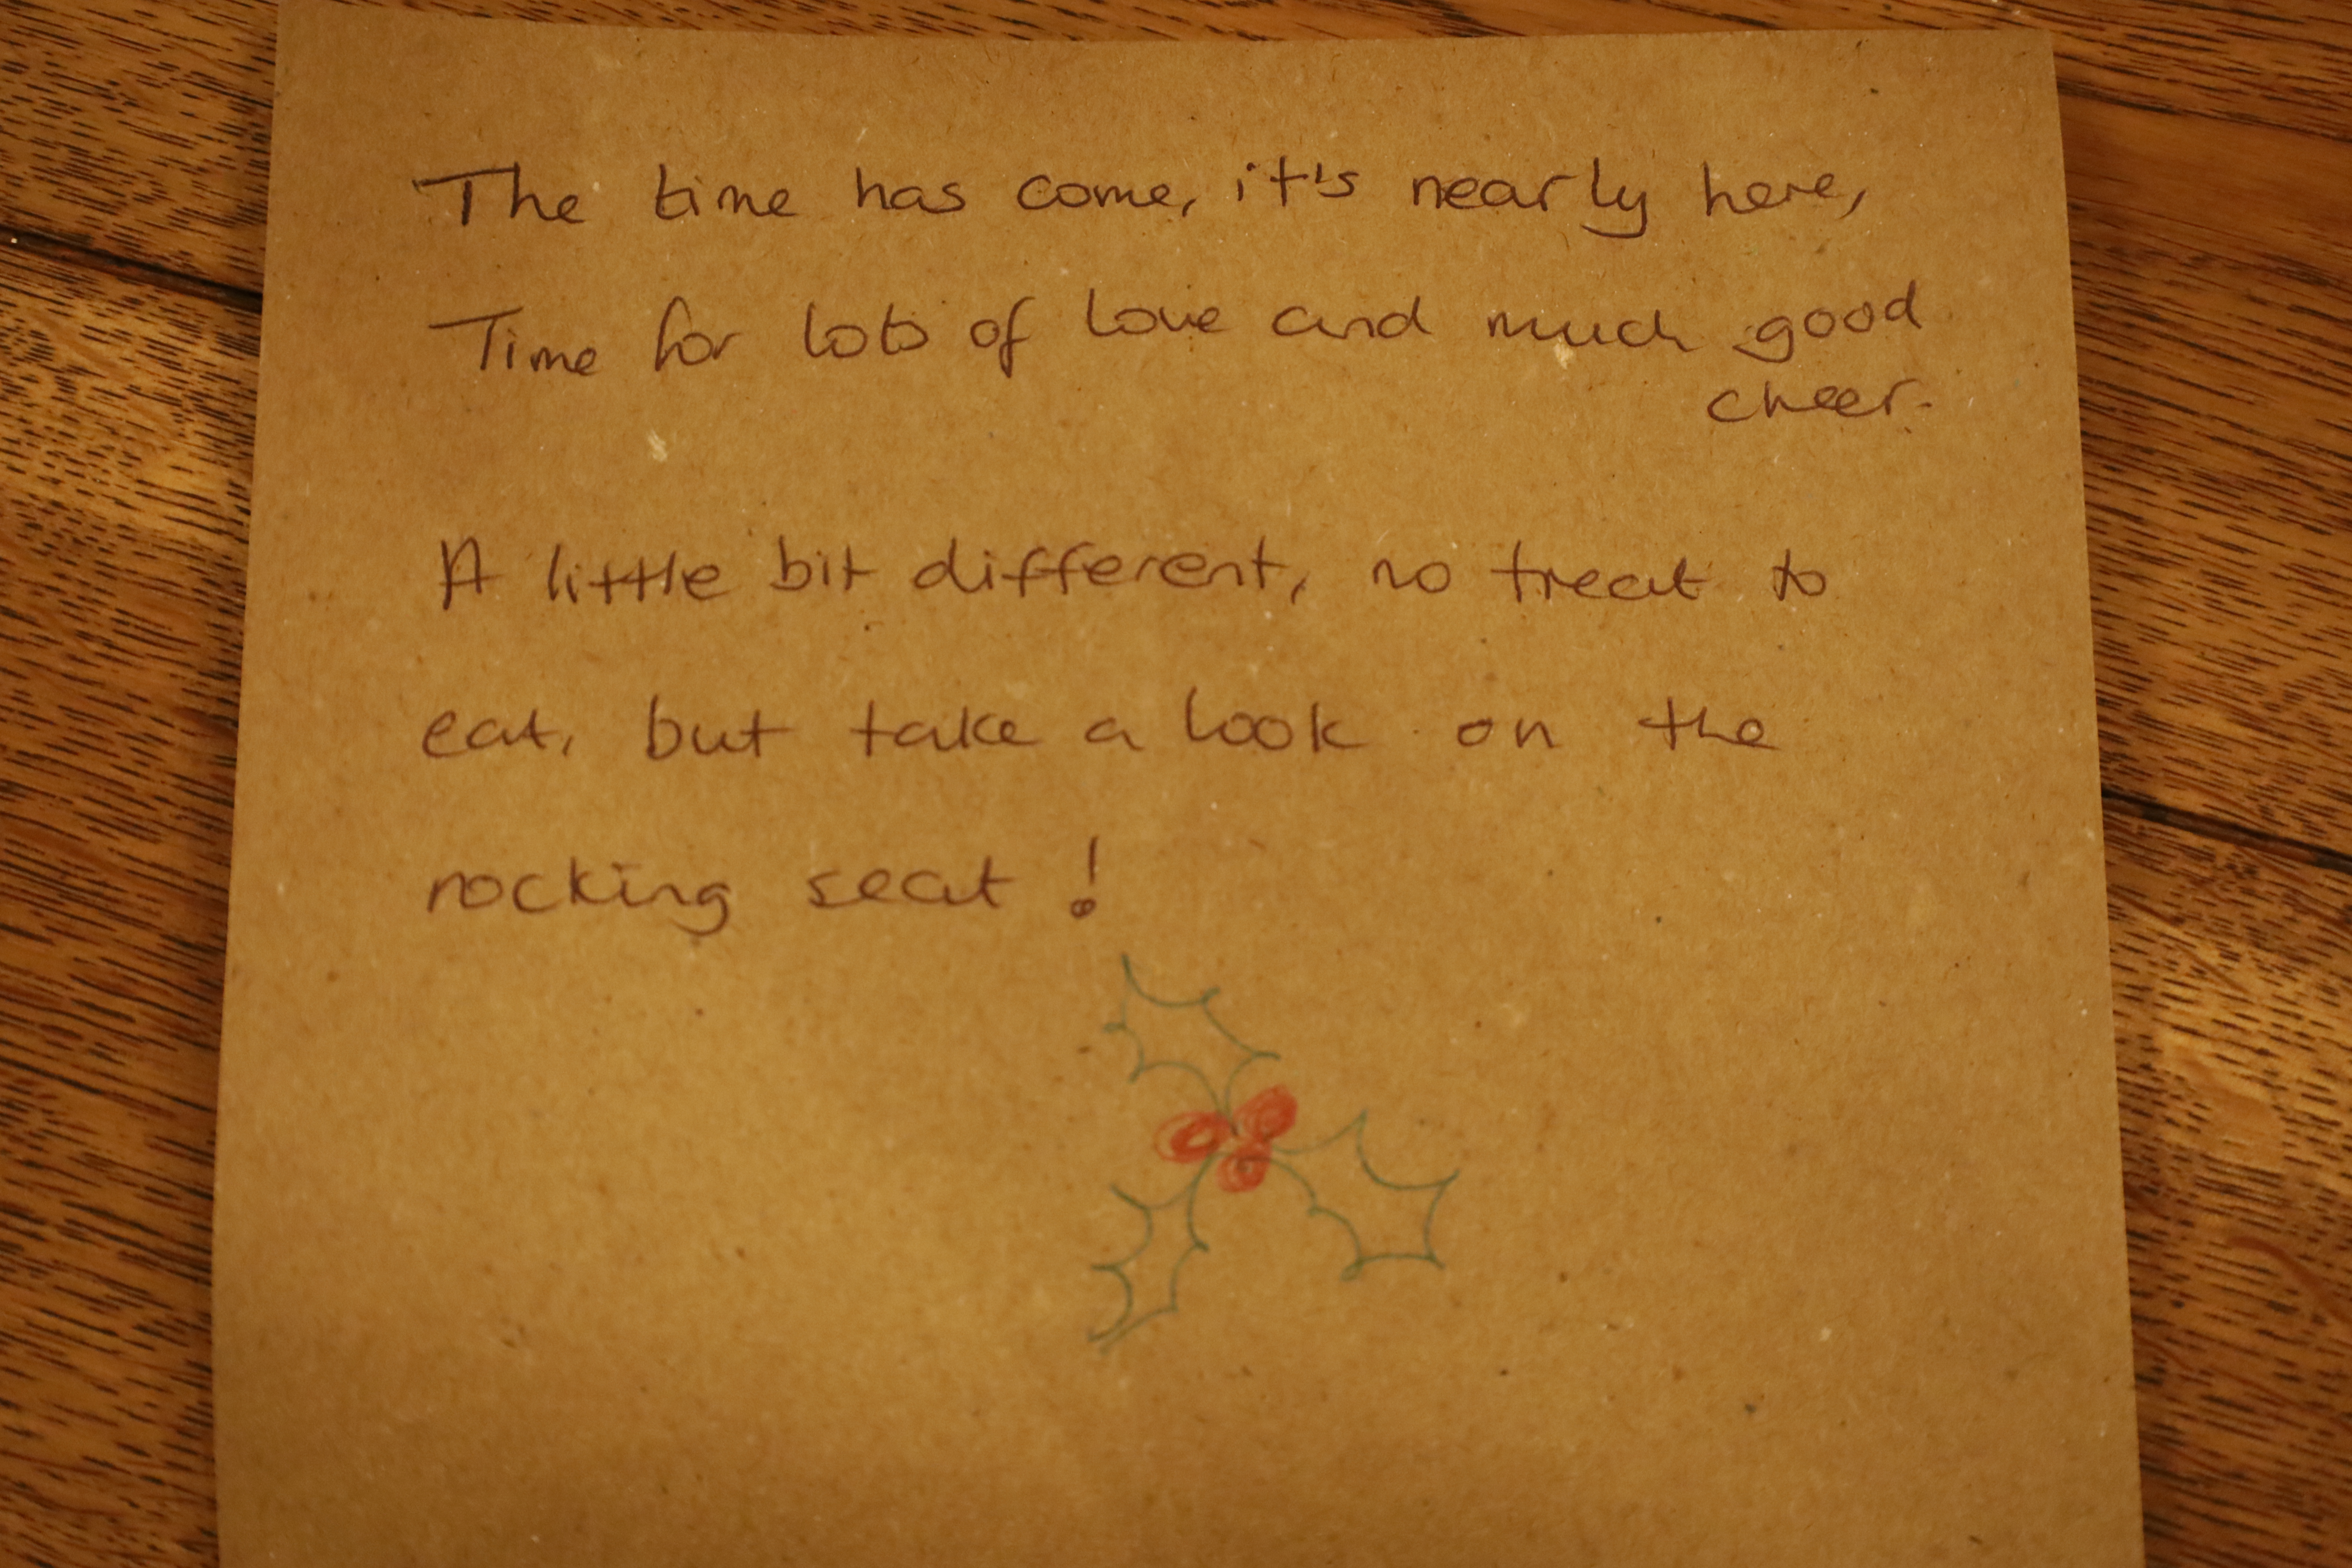 The time has come, it's nearly here,
Time for lots of love and much good
cheer.
A little bit different, no treat to
eat, but take a look on the
rocking seat!